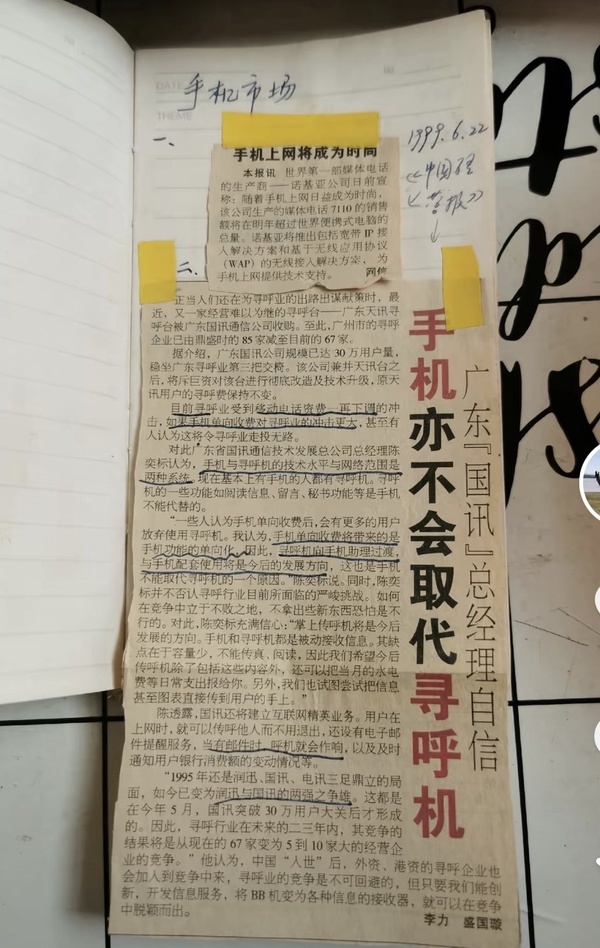 DATE
THEME
手机市场
一、
1999.6.22
《中国经
营报》
手机上网将成为时尚
本报讯 世界第一部媒体电话
的生产商——诺基亚公司日前宣
称:随着手机上网日益成为时尚,
该公司生产的媒体电话7110的销售
额将在明年超过世界便携式电脑的
总量。诺基亚将推出包括宽带IP接
入解决方案和基于无线应用协议
(WAP)的无线接入解决方案,为
手机上网提供技术支持。 网信
二、
手机亦不会取代寻呼机
广东『国讯』总经理自信
正当人们还在为寻呼业的出路出谋献策时,最
近,又一家经营难以为继的寻呼台——广东天讯寻
呼台被广东国讯通信公司收购。至此,广州市的寻呼
企业已由鼎盛时的85家减至目前的67家。
据介绍,广东国讯公司规模已达30万用户量,
稳坐广东寻呼业第三把交椅。该公司兼并天讯台之
后,将斥巨资对该台进行彻底改造及技术升级,原天
讯用户的寻呼费保持不变。
目前寻呼业受到移动电话资费一再下调的冲
击,如果手机单向收费对寻呼业的冲击更大,甚至有
人认为这将令寻呼业走投无路。
对此广东省国讯通信技术发展总公司总经理陈
奕标认为,手机与寻呼机的技术水平与网络范围是
两种系统,现在基本上有手机的人都有寻呼机。寻呼
机的一些功能如阅读信息、留言、秘书功能等是手机
不能代替的。
“一些人认为手机单向收费后,会有更多的用户
放弃使用寻呼机。我认为,手机单向收费将带来的是
手机功能的单向化。因此,寻呼机向手机助理过渡,
与手机配套使用将是今后的发展方向,这也是手机
不能取代寻呼机的一个原因。”陈奕标说。同时,陈奕
标并不否认寻呼行业目前所面临的严峻挑战。如何
在竞争中立于不败之地,不拿出些新东西恐怕是不
行的。对此,陈奕标充满信心:“掌上传呼机将是今后
发展的方向。手机和寻呼机都是被动接收信息。其缺
点在于容量少,不能传真、阅读,因此我们希望今后
传呼机除了包括这些内容外,还可以把当月的水电
费等日常支出报给你。另外,我们也试图尝试把信息
甚至图表直接传到用户的手上。”
陈透露,国讯还将建立互联网精英业务。用户在
上网时,就可以传呼他人而不用退出,还设有电子邮
件提醒服务,当有邮件时,呼机就会作响,以及及时
通知用户银行消费额的变动情况等。
“1995年还是润迅、国讯、电讯三足鼎立的局
面,如今已变为润迅与国讯的两强之争雄。这都是
在今年5月,国讯突破30万用户大关后才形成
的。因此,寻呼行业在未来的二三年内,其竞争的
结果将是从现在的67家变为5到10家大的经营企
业的竞争。”他认为,中国“入世”后,外资、港资的寻呼企业也
会加入到竞争中来,寻呼业的竞争是不可回避的,但只要我们能创
新,开发信息服务,将BB机变为各种信息的接收器,就可以在竞争
中脱颖而出。
李力 盛国璇